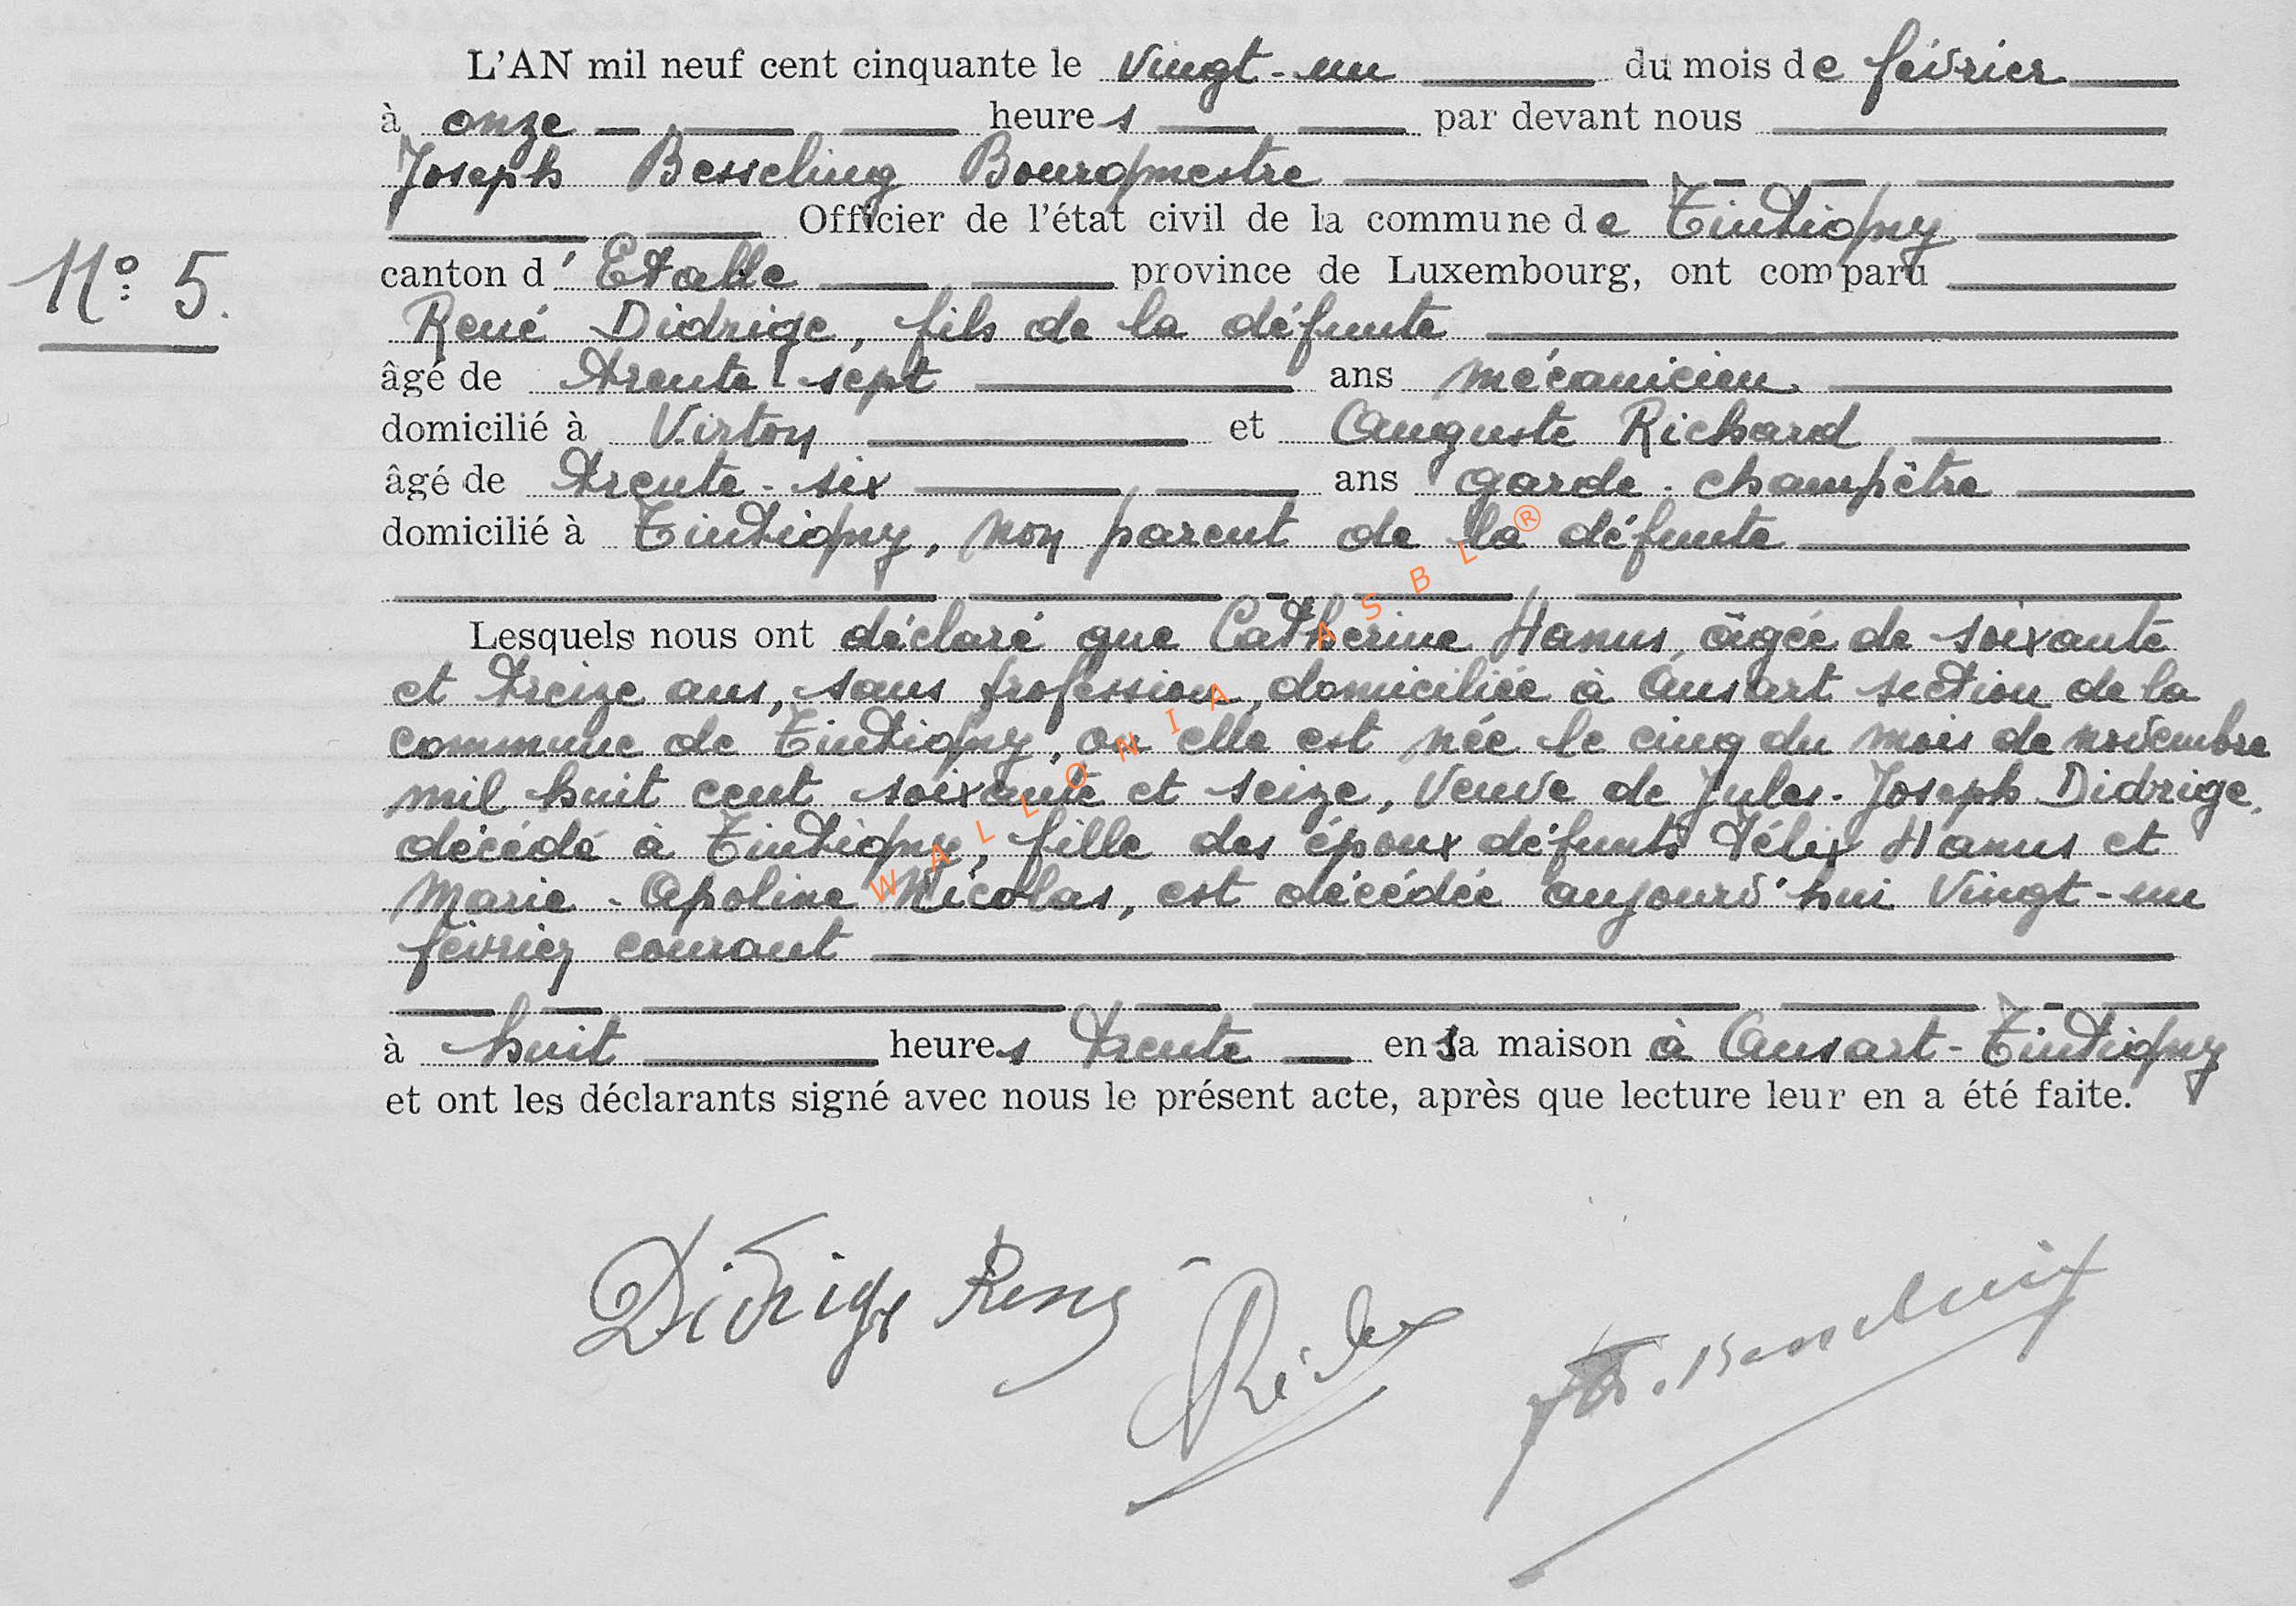 L'AN mil neuf cent cinquante le vingt-un du mois de février
à onze heures par devant nous
Joseph Besseling Bourgmestre
Officier de l'état civil de la commune de Tintigny
N° 5.
canton d'Etalle province de Luxembourg, ont comparu
René Didrige, fils de la défunte
âgé de trente-sept ans mécanicien.
domicilié à Virton et Auguste Richard
âgé de trente-six ans garde-champêtre
domicilié à Tintigny, non parent de la défunte
Lesquels nous ont déclaré que Catherine Hanus, âgée de soixante
et treize ans, sans profession, domiciliée à Ansart section de la
commune de Tintigny, où elle est née le cinq du mois de novembre
mil huit cent soixante et seize, Veuve de Jules-Joseph Didrige,
décédé à Tintigny, fille des époux défunts Félix Hanus et
Marie-Apoline Nicolas, est décédée aujourd'hui vingt-un
février courant
à huit heures trente en sa maison à Ansart-Tintigny
et ont les déclarants signé avec nous le présent acte, après que lecture leur en a été faite.
Didrige René
WALLONIA ASBL ®